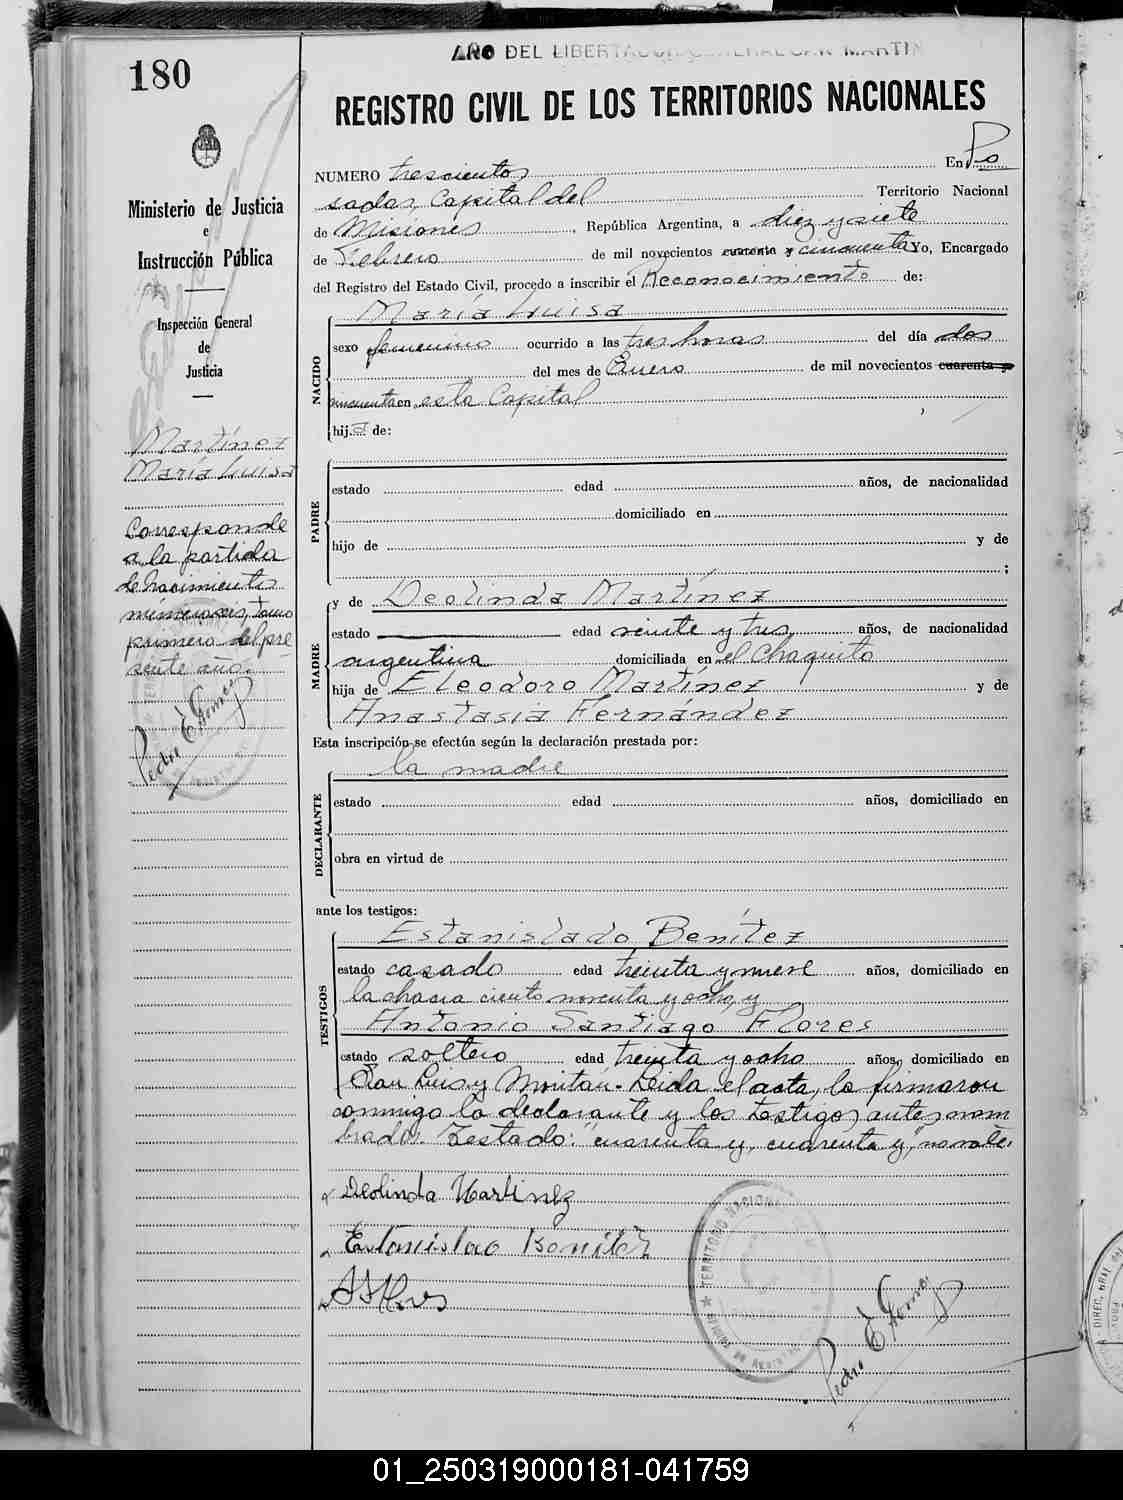 180
AÑO DEL LIBERTADOR GENERAL SAN MARTIN
REGISTRO CIVIL DE LOS TERRITORIOS NACIONALES
Ministerio de Justicia
e
Instrucción Pública
Inspección General
de
Justicia
Martínez
María Luisa
Corresponde
a la partida
de nacimiento
número seis, tomo
primero del pre
sente año.
Pedro E. Gomez
NUMERO trescientos En Po
sadas, Capital del Territorio Nacional
de Misiones, República Argentina, a diez y siete
de Febrero de mil novecientos cuarenta y cincuenta Yo, Encargado
del Registro del Estado Civil, procedo a inscribir el Reconocimiento de:
NACIDO
María Luisa
sexo femenino ocurrido a las tres horas del día dos
del mes de Enero de mil novecientos cuarenta y
cincuenta en esta Capital
hija de:
PADRE
estado edad años, de nacionalidad
domiciliado en
hijo de y de
;
MADRE
y de Deolinda Martínez
estado edad veinte y tres años, de nacionalidad
argentina domiciliada en el Chaquito
hija de Eleodoro Martínez y de
Anastasia Fernández
Esta inscripción se efectúa según la declaración prestada por:
la madre
DECLARANTE
estado edad años, domiciliado en
obra en virtud de
ante los testigos:
TESTIGOS
Estanislado Benítez
estado casado edad treinta y nueve años, domiciliado en
la chacra ciento noventa y ocho, y
Antonio Santiago Flores
estado soltero edad treinta y ocho años, domiciliado en
San Luis y Moritán.- Leida el acta, la firmaron
conmigo la declarante y los testigos antes nom
brados. Testado: "cuarenta y, cuarenta y," no vale.
Deolinda Martinez
Estanislao Benitez
A S Flores
Pedro E. Gomez
01_250319000181-041759